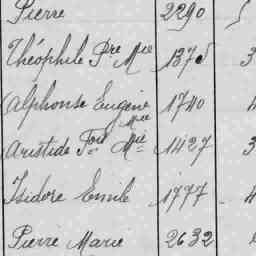 Pierre 2290
Théophile Pre Mie 1375 3
Alphonse Eugène Mie 1740
Aristide Fois Mie 1427 3
Isidore Emile 1777 4
Pierre Marie 2632